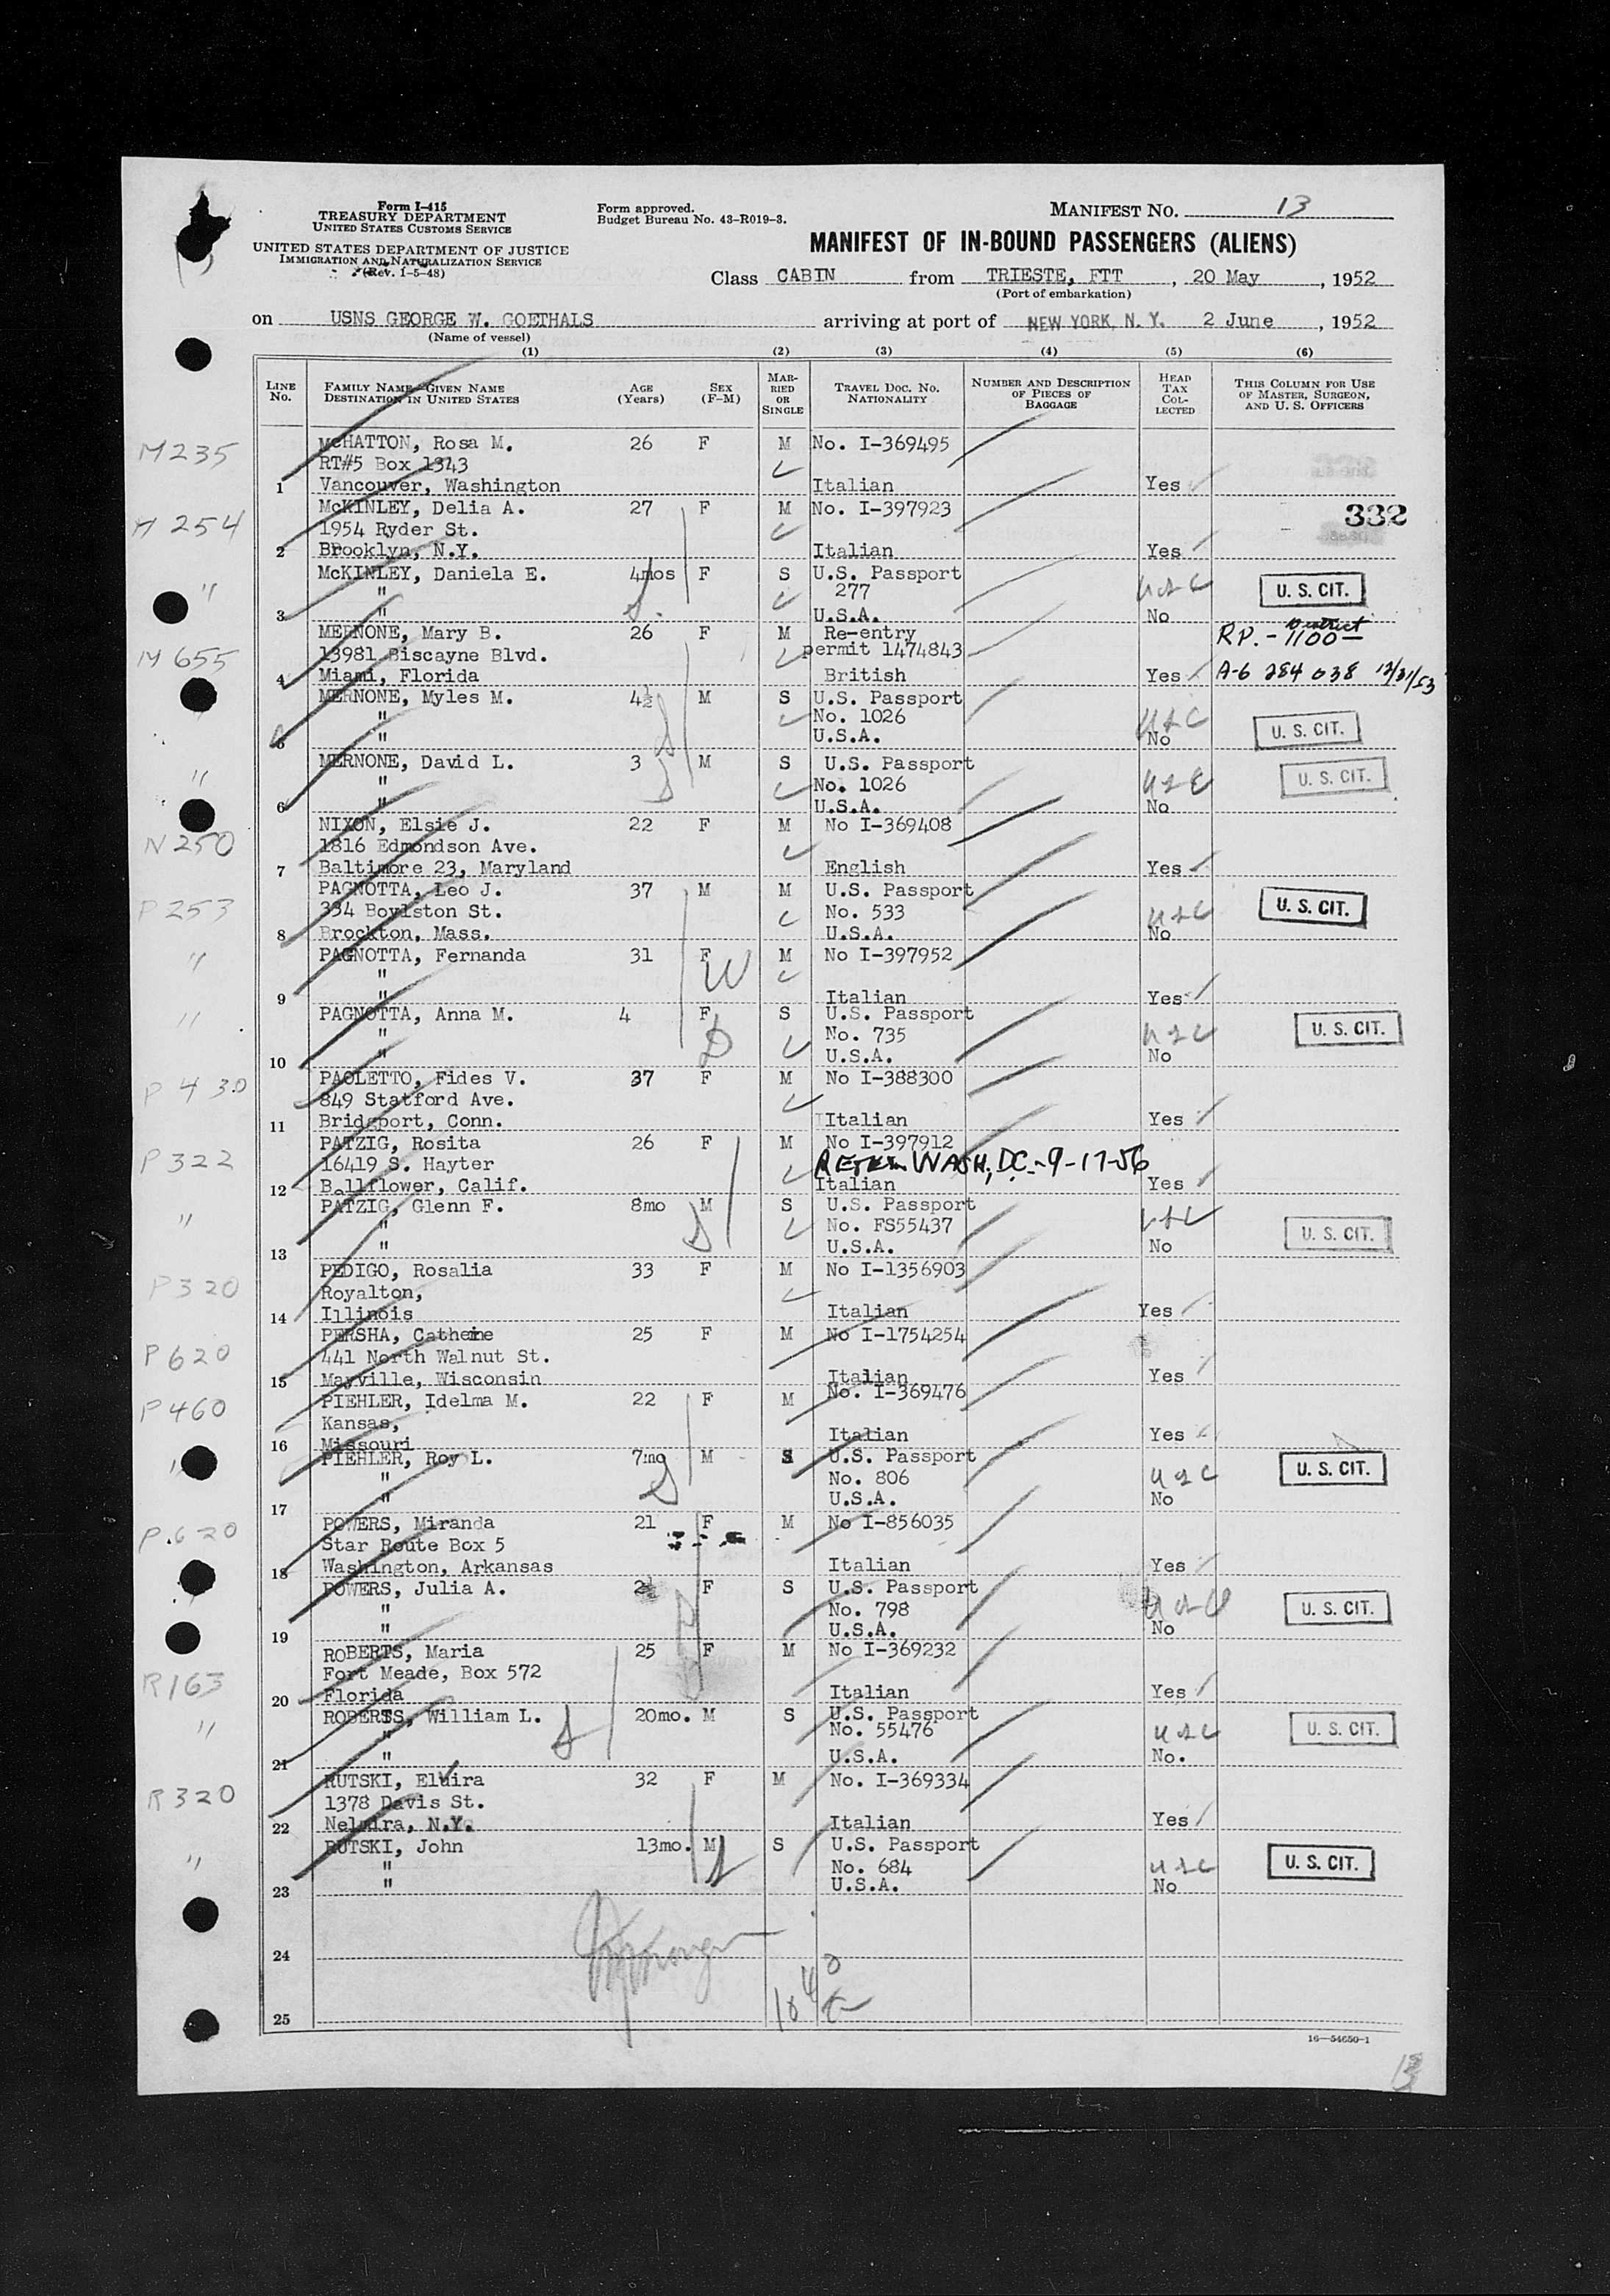 Form I-415
TREASURY DEPARTMENT
UNITED STATES CUSTOMS SERVICE
UNITED STATES DEPARTMENT OF JUSTICE
IMMIGRATION AND NATURALIZATION SERVICE
(Rev. 1-5-48)
Form approved.
Budget Bureau No. 43-R019-3.
MANIFEST NO. 13
MANIFEST OF IN-BOUND PASSENGERS (ALIENS)
Class CABIN from TRIESTE, FTT, 20 May, 1952
(Port of embarkation)
on USNS GEORGE W. GOETHALS arriving at port of NEW YORK, N. Y. 2 June, 1952
(Name of vessel)
(1) (2) (3) (4) (5) (6)
LINE No. FAMILY NAME—GIVEN NAME DESTINATION IN UNITED STATES AGE (Years) SEX (F-M) MARRIED OR SINGLE TRAVEL DOC. NO. NATIONALITY NUMBER AND DESCRIPTION OF PIECES OF BAGGAGE HEAD TAX COLLECTED THIS COLUMN FOR USE OF MASTER, SURGEON, AND U. S. OFFICERS
M235 McHATTON, Rosa M. 26 F M No. I-369495
RT#5 Box 1343
1 Vancouver, Washington Italian Yes
McKINLEY, Delia A. 27 F M No. I-397923
254 1954 Ryder St. 332
2 Brooklyn, N.Y. Italian Yes
McKINLEY, Daniela E. 4mos F S U.S. Passport
" " 277 U. S. CIT.
3 " U.S.A. No
MERNONE, Mary B. 26 F M Re-entry RP. - 1100 -
M 655 13981 Biscayne Blvd. permit 1474843
4 Miami, Florida British Yes A-6 284 038 12/31/53
MERNONE, Myles M. 4½ M S U.S. Passport
" No. 1026 U. S. CIT.
5 " U.S.A. No
MERNONE, David L. 3 M S U.S. Passport
" " No. 1026 U. S. CIT.
6 " U.S.A. No
NIXON, Elsie J. 22 F M No I-369408
N250 1816 Edmondson Ave.
7 Baltimore 23, Maryland English Yes
PAGNOTTA, Leo J. 37 M M U.S. Passport
P253 334 Boylston St. No. 533 U. S. CIT.
8 Brockton, Mass. U.S.A. No
PAGNOTTA, Fernanda 31 F M No I-397952
" " W
9 " Italian Yes
PAGNOTTA, Anna M. 4 F S U.S. Passport
" " No. 735 U. S. CIT.
10 " U.S.A. No
PAOLETTO, Fides V. 37 F M No I-388300
P 430 849 Statford Ave.
11 Bridgeport, Conn. Italian Yes
PATZIG, Rosita 26 F M No I-397912
P322 16419 S. Hayter WASH, DC. - 9-17-56
12 Bellflower, Calif. Italian Yes
PATZIG, Glenn F. 8mo M S U.S. Passport
" " No. FS55437 U. S. CIT.
13 " U.S.A. No
PEDIGO, Rosalia 33 F M No I-1356903
P320 Royalton,
14 Illinois Italian Yes
PERSHA, Catherine 25 F M No I-1754254
P620 441 North Walnut St.
15 Mayville, Wisconsin Italian Yes
PIEHLER, Idelma M. 22 F M No. I-369476
P460 Kansas,
16 Missouri Italian Yes
PIEHLER, Roy L. 7mo M S U.S. Passport
" No. 806 U. S. CIT.
17 " U.S.A. No
POWERS, Miranda 21 F M No I-856035
P.620 Star Route Box 5
18 Washington, Arkansas Italian Yes
POWERS, Julia A. F S U.S. Passport
" No. 798 U. S. CIT.
19 " U.S.A. No
ROBERTS, Maria 25 F M No I-369232
R163 Fort Meade, Box 572
20 Florida Italian Yes
ROBERTS, William L. 20mo. M S U.S. Passport
" " No. 55476 U. S. CIT.
21 " U.S.A. No.
RUTSKI, Elvira 32 F M No. I-369334
R320 1378 Davis St.
22 N.Y. Italian Yes
RUTSKI, John 13mo. M S U.S. Passport
" " No. 684 U. S. CIT.
23 " U.S.A. No
24
25
16—54650-1
13